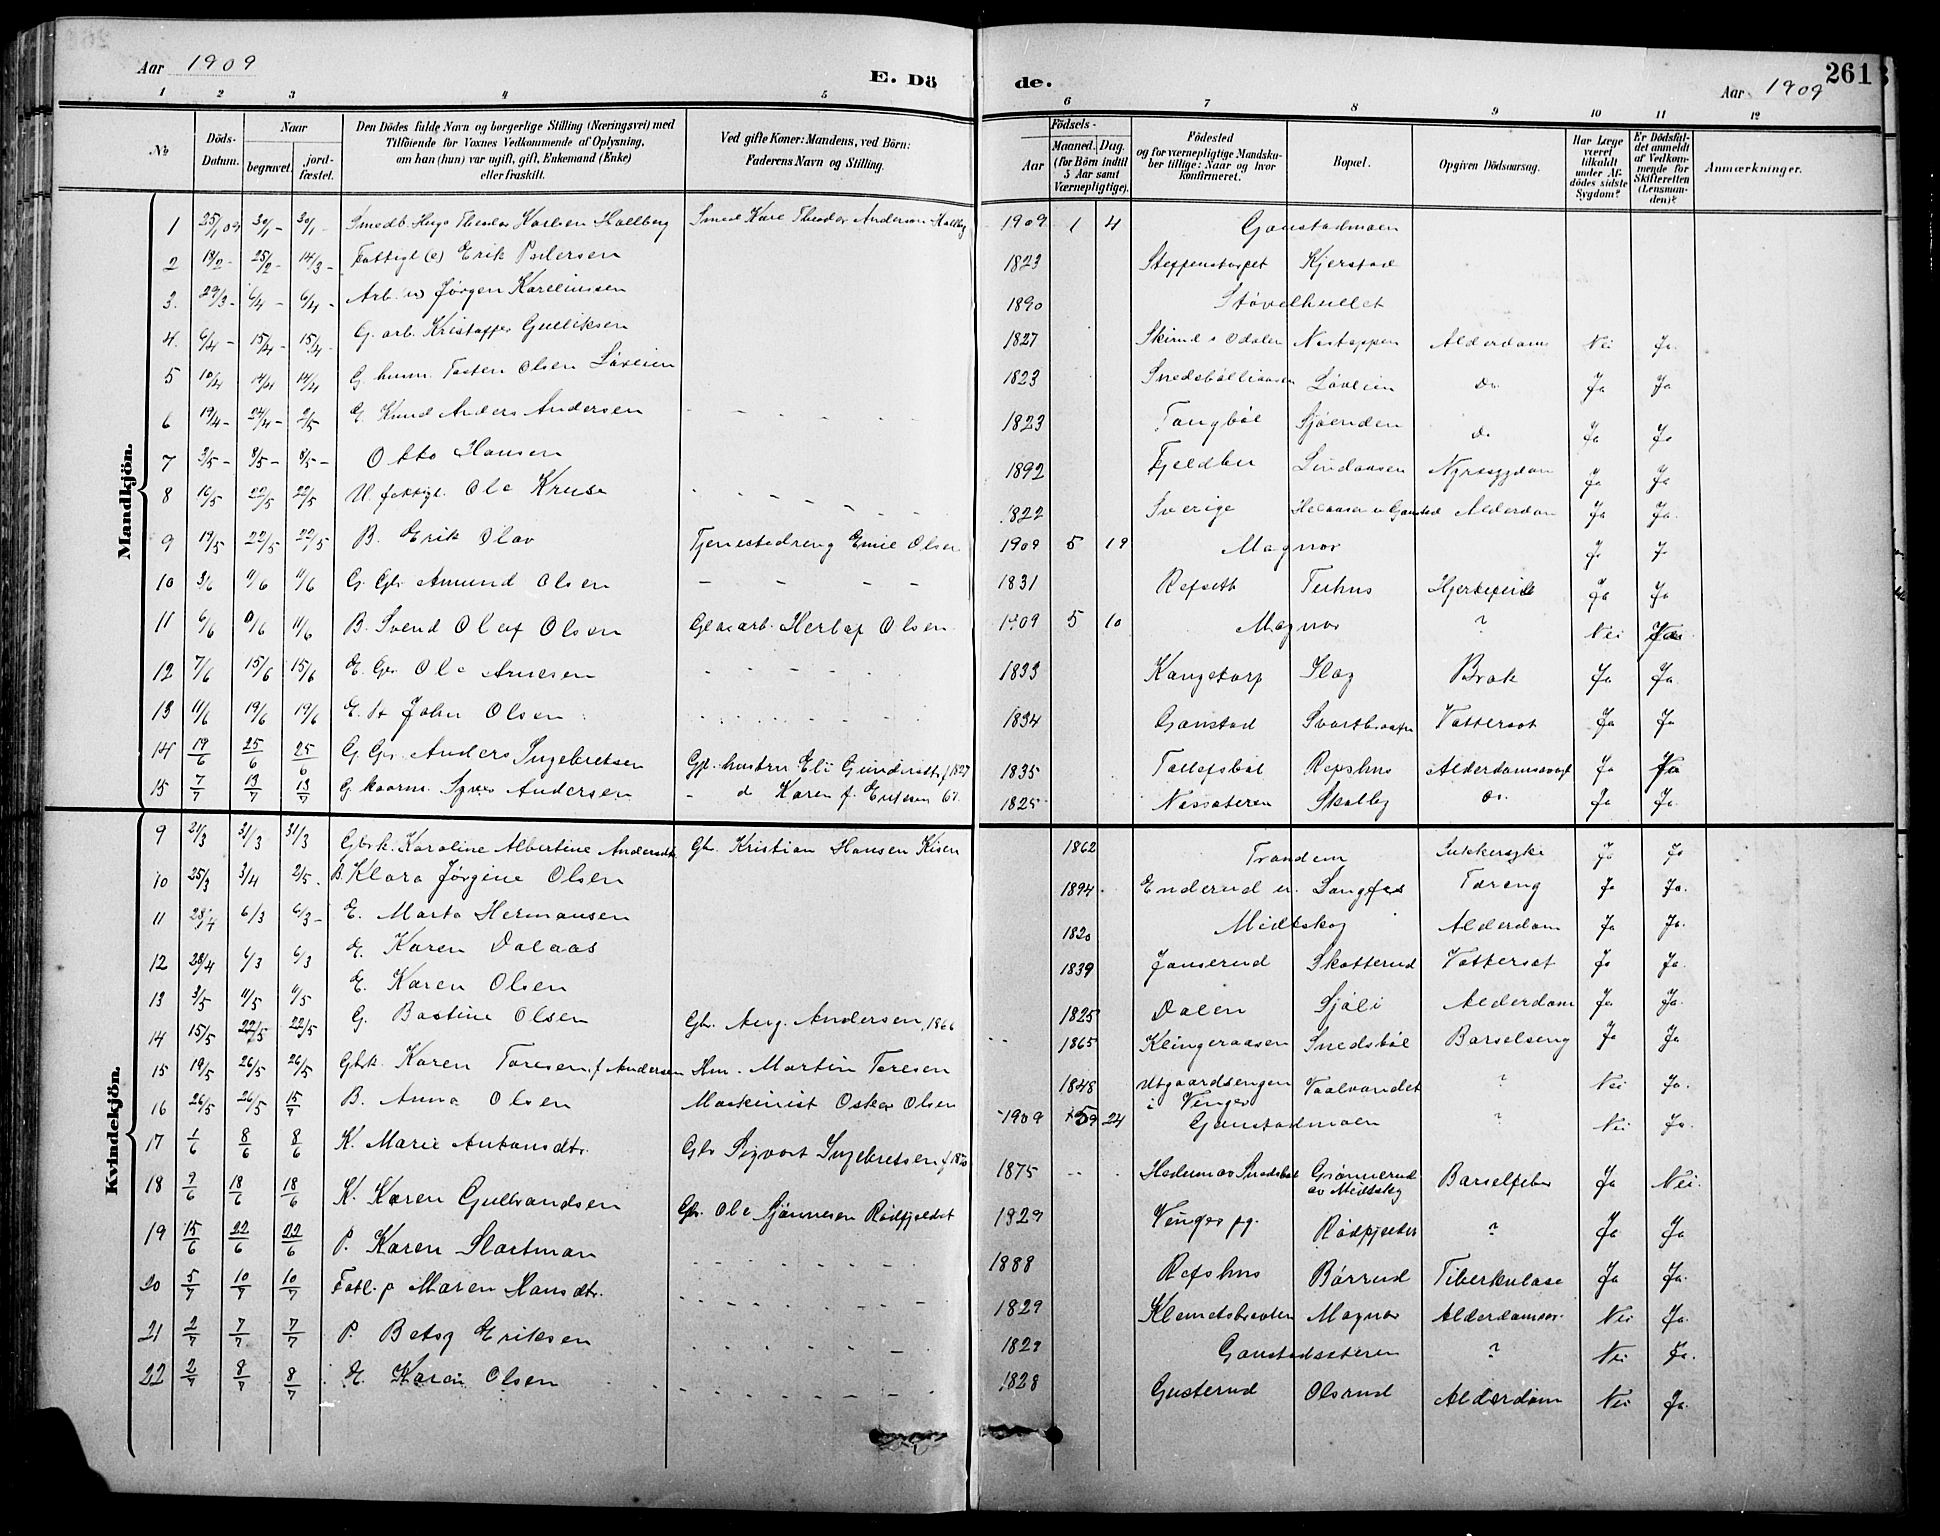 Aar 1909
E. Dö
de.
Aar 1909
261
1 2 3 4 5 6 7 8 9 10 11 12
No
Döds-Datum.
Naar
begravet.
jord-fæstet.
Den Dödes fulde Navn og borgerlige Stilling (Næringsvei) med
Tilföiende for Voxnes Vedkommende af Oplysning,
om han (hun) var ugift, gift, Enkemand (Enke)
eller fraskilt.
Ved gifte Koner: Mandens, ved Börn:
Faderens Navn og Stilling.
Födsels-
Aar
Maaned. Dag.
(for Börn indtil
5 Aar samt
Værnepligtige).
Födested
og for værnepligtige Mandska-
ber tillige: Naar og hvor
konfirmeret.
Bopæl.
Opgiven Dödsaarsag.
Har Læge
været
tilkaldt
under Af-
dödes sidste
Sygdom?
Er Dödsfal-
det anmeldt
af Vedkom-
mende for
Skifteretten
(Lensman-
den)?
Anmærkninger.
Mandkjön.
1 25/1 09 30/1 - 30/1 - Smedb. Hugo Theodor Karlsen Hallberg Smed Karl Theodor Anderson Hallbg 1909 1 4 Gaustadmoen
2 18/2 - 25/2 - 14/3 - Fattigl (e) Erik Pedersen 1823 Steppenstorpet Kjerstad
3. 29/3 - 6/4 - 6/4 - Arb. u Jørgen Karelinsen 1890 Støvelhullet
4. 6/4 - 15/4 15/4 G. arb. Kristoffer Gulliksen 1827 Skirud i Odalen Nestoppen Alderdoms Nei Ja.
5 10/4 14/4 14/4 G. husm. Tosten Olsen Løveien 1823 Løveien Do Ja Ja
6 19/4 - 24/4 - 2/5 Anders Andersen 1823 Tangbøl Sjøenden Do Ja Ja
7 3/5 - 8/5 - 8/5 - Otto Hansen 1892 Lindaasen Nyresygdom Ja Ja
8 16/5 22/5 22/5 U. fattigl. Ole Kruse 1822 Sverige Alderdom Ja Ja.
9 19/5 22/5 22/5 B. Erik Olav Tjenestedreng Emil Olsen 1909 5 19 Magnor Ja J
10 3/6 11/6 11/6 G. Gbr. Amund Olsen 1831 Refseth Terhus Hjertefeil Ja Ja
11 6/6 11/6 B. Svend Olaf Olsen Glasarb. Olsen 1909 5 10 Magnor ? Nei
12 7/6 15/6 15/6 E. Gbr Ole Arnesen 1833 Kangetorp Brok Ja Ja.
13 11/6 19/6 19/6 E. John Olsen 1834 Gaustad Vattersot Ja Ja
14 19/6 25/6 25/6 G. Gbr. Anders Ingebretsen Gft. hustru Eli Gundersdtr f 1827 1835 Tollefsbøl Refshus Alderdomssvagh Ja
15 7/7 13/7 13/7 G. Andersen d Karen f. Eriksen 1825 Nessateren Skalby do. Ja Ja.
Kvindekjön.
9 21/3 31/3 31/3 Gbrk. Karoline Albertine Andersdtr Gbr. Kristian Hansen Kisen 1862 Trandem Sukkersyke Ja Ja
10 25/3 3/4 2/5. B. Klara Jørgine Olsen 1894 Enderud u. Tæring Ja Ja.
11 28/4 6/3 6/3 - E. Marta Hermansen 1820 Midtskog Alderdom Ja Ja.
12 28/4 6/3 6/3 E. Karen Dalaas 1839 Janserud Skotterud Vattersot Ja Ja.
13 3/5 11/5 11/5 E. Karen Olsen 1825 Dalen Sjøli Alderdom Ja Ja.
14 15/5 22/5 22/5 G. Bastine Olsen Gbr. Aug. Andersen, 1866 1865 Klingeraasen Snedsbøl Barselseng Ja Ja
15 19/5 26/5 26/5 Gbrk. Karen Toresen, f Andersen Hm. Martin Toresen 1848 Utgaardsengen i Vinger Vaalvandet ? Nei Ja.
16 26/5 26/5 15/7 B. Anna Olsen Maskinist Oskar Olsen 1909 24 Gaustadmoen ? Nei Ja.
17 1/6 8/6 8/6 K. Marie Antonsdtr. Gbr Sigvart Ingebretsen 1875 Hedum av Snedsbøl Grønnerud av Midtskog Barselfeber Ja Nei.
18 9/6 18/6 18/6 K. Karen Gulbrandsen Gbr. Ole Rødfjeldet 1829 Vinger pg. Rødfjeldet ? Ja Ja
19 15/6 22/6 22/6 P. Karen Slastman 1888 Refshus Børrud Tiberkulose Ja Ja.
20 5/7 10/7 10/7 Fatl. p Maren Hansdtr. 1829 Magnor Alderdomssv. Nei Ja.
21 2/7 7/7 7/7 P. Betsy Eriksen 1829 Gaustadsæteren ? Nei Ja.
22 2/7 8/7 8/7 E. Karen Olsen 1828 Gusterud Olsrud Alderdom Nei Ja.